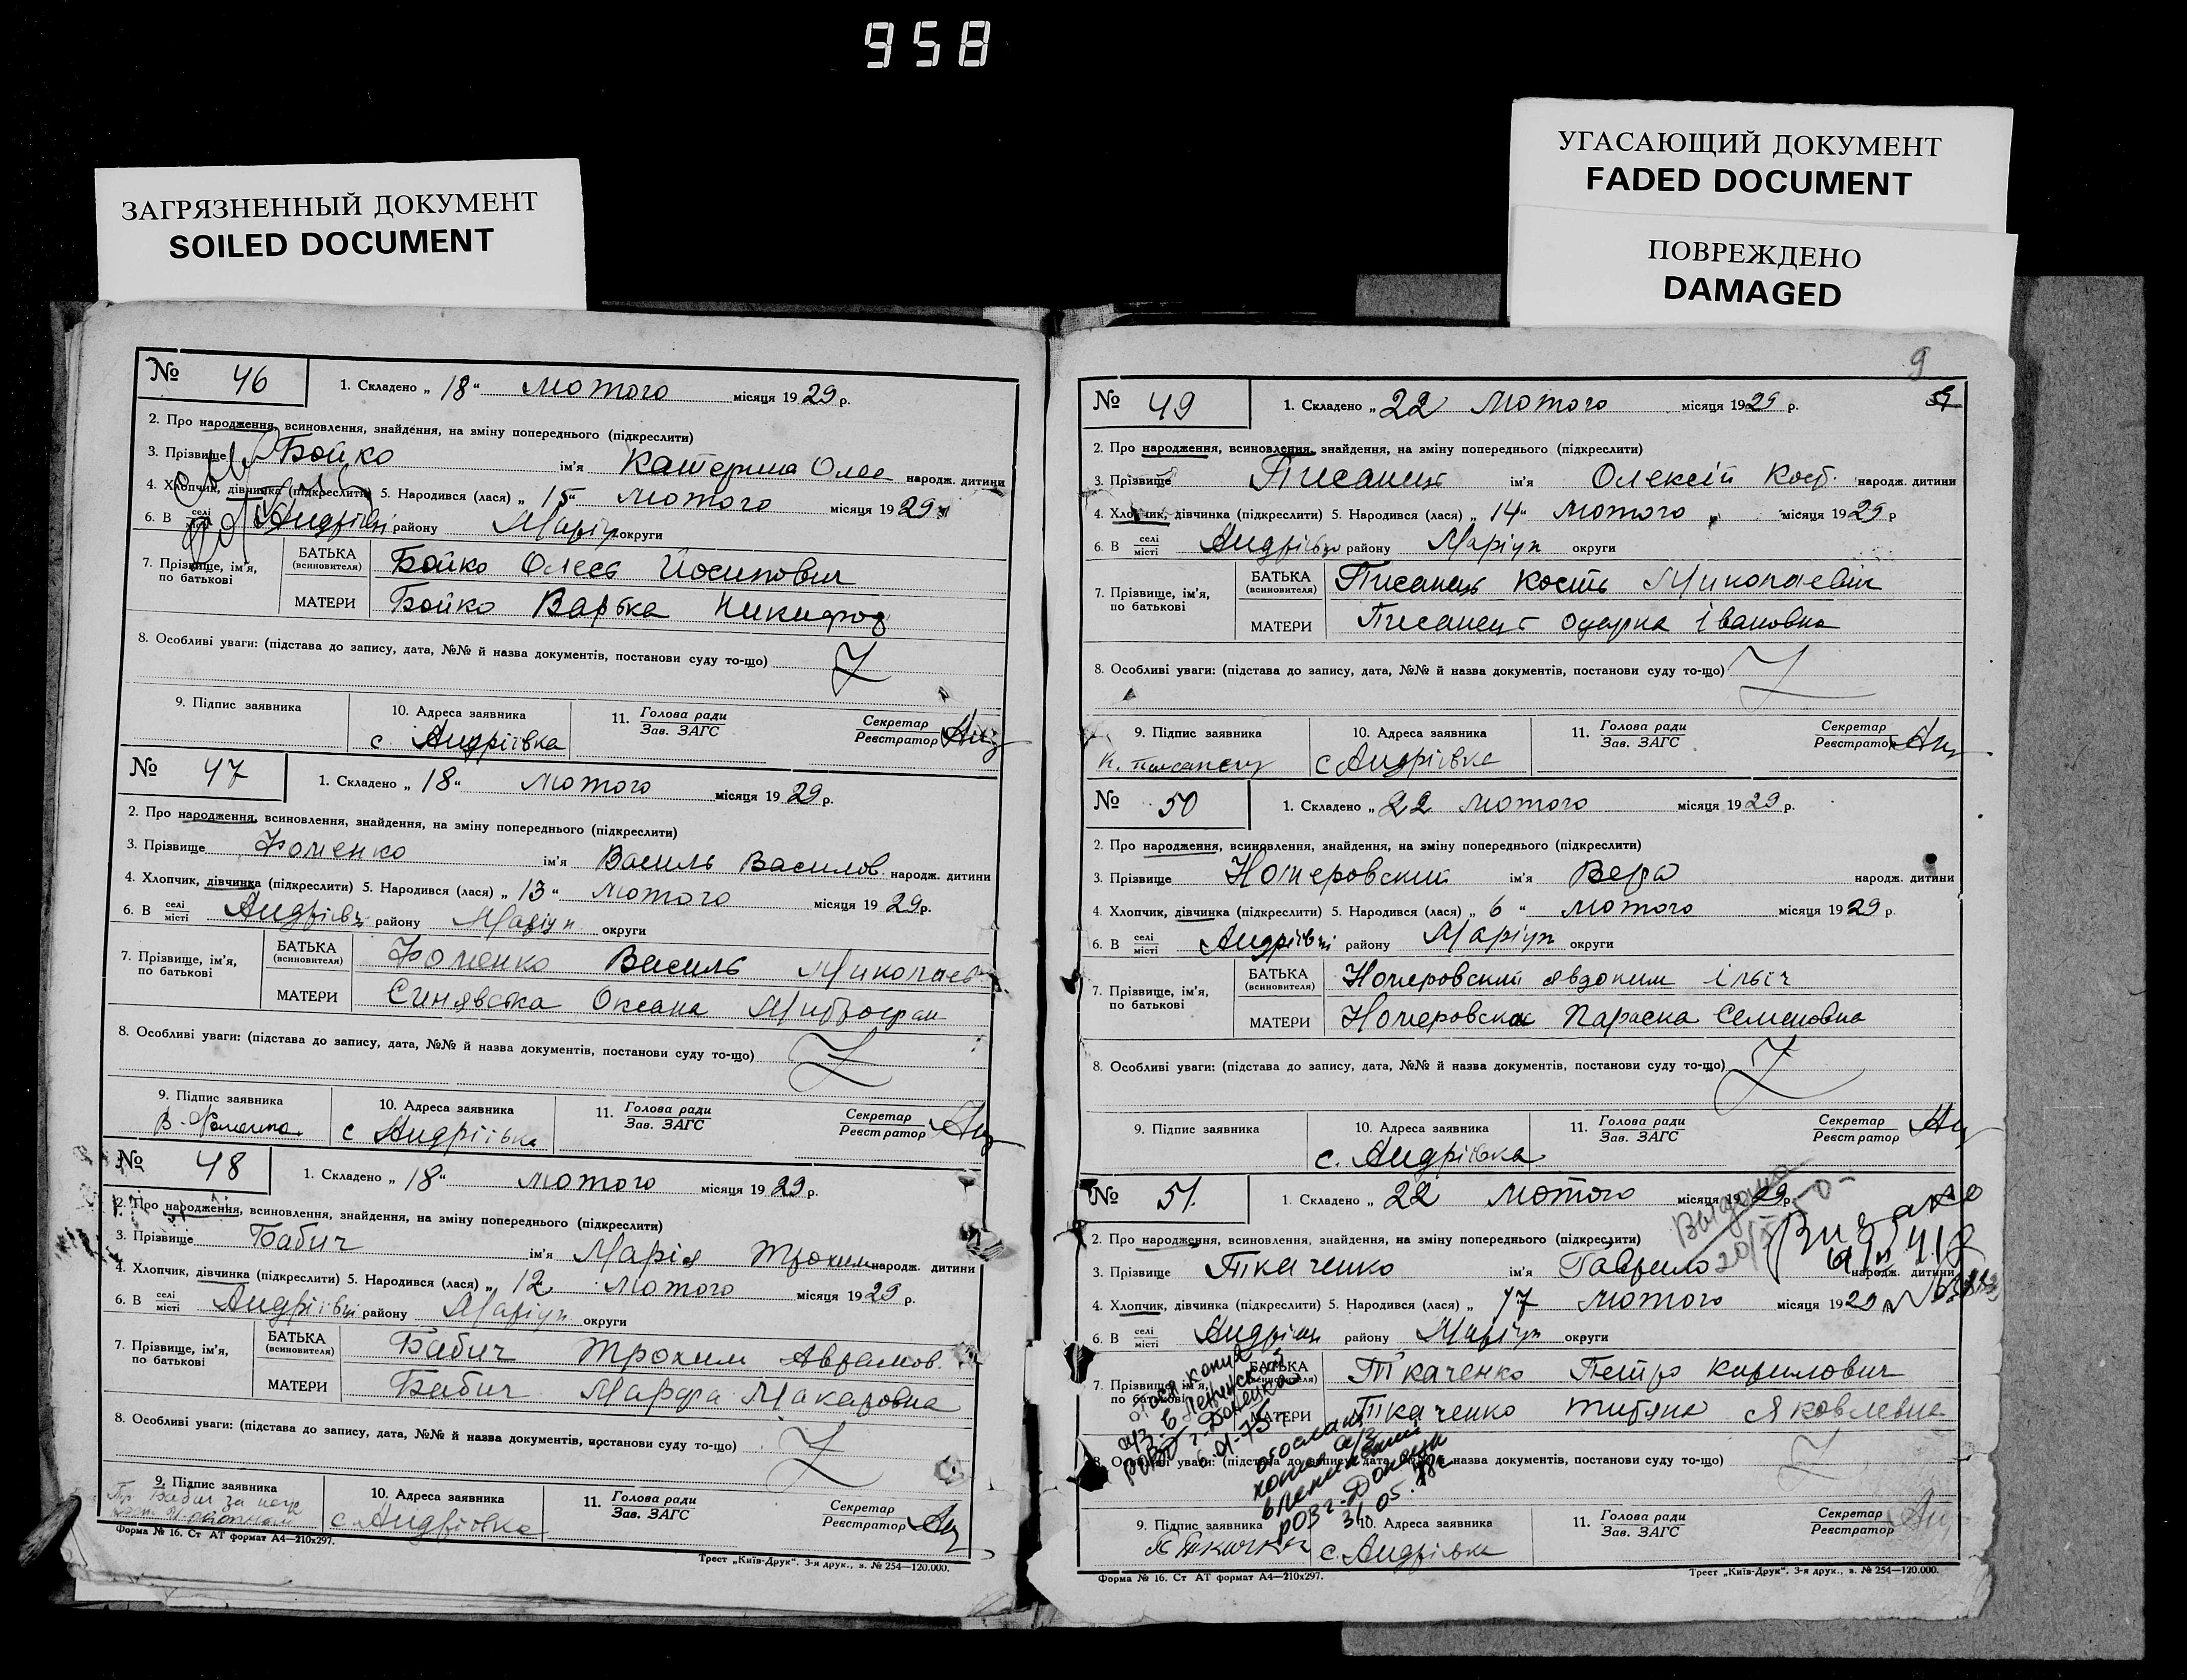 958
ЗАГРЯЗНЕННЫЙ ДОКУМЕНТ
SOILED DOCUMENT
УГАСАЮЩИЙ ДОКУМЕНТ
FADED DOCUMENT
ПОВРЕЖДЕНО
DAMAGED
№ 46
1. Складено „ 18 " лютого місяця 19 29 р.
2. Про народження, всиновлення, знайдення, на зміну попереднього (підкреслити)
3. Прізвище Бойко ім'я Катерина Олек народж. дитини
4. Хлопчик, дівчинка (підкреслити) 5. Народився (лася) „ 15 " лютого місяця 19 29
6. В селі місті Андріївці району Маріуп округи
7. Прізвище, ім'я, по батькові
БАТЬКА (всиновителя) Бойко Олесь Йосипович
МАТЕРИ Бойко Варька Никифор
8. Особливі уваги: (підстава до запису, дата, №№ й назва документів, постанови суду то-що)
9. Підпис заявника
10. Адреса заявника с Андріївка
11. Голова ради Зав. ЗАГС
Секретар Реєстратор
№ 47
1. Складено „ 18 " лютого місяця 19 29 р.
2. Про народження, всиновлення, знайдення, на зміну попереднього (підкреслити)
3. Прізвище Фоменко ім'я Василь Василов. народж. дитини
4. Хлопчик, дівчинка (підкреслити) 5. Народився (лася) „ 13 " лютого місяця 19 29 р.
6. В селі місті Андріївці району Маріуп округи
7. Прізвище, ім'я, по батькові
БАТЬКА (всиновителя) Фоменко Василь Миколаєв
МАТЕРИ Синявська Оксана Митрофан
8. Особливі уваги: (підстава до запису, дата, №№ й назва документів, постанови суду то-що)
9. Підпис заявника В. Фоменко
10. Адреса заявника с Андріївка
11. Голова ради Зав. ЗАГС
Секретар Реєстратор
№ 48
1. Складено „ 18 " лютого місяця 19 29 р.
2. Про народження, всиновлення, знайдення, на зміну попереднього (підкреслити)
3. Прізвище Бабич ім'я Марія Трохим народж. дитини
4. Хлопчик, дівчинка (підкреслити) 5. Народився (лася) „ 12 лютого місяця 19 29 р.
6. В селі місті Андріївці району Маріуп округи
7. Прізвище, ім'я, по батькові
БАТЬКА (всиновителя) Бабич Трохим Аврамов.
МАТЕРИ Бабич Марфа Макаровна
8. Особливі уваги: (підстава до запису, дата, №№ й назва документів, постанови суду то-що)
9. Підпис заявника Тр. Бабич за
10. Адреса заявника с Андріївка
11. Голова ради Зав. ЗАГС
Секретар Реєстратор
Форма № 16. Ст АТ формат А4—210x297.
Трест „Київ-Друк". 3-я друк., з. № 254—120.000.
9
№ 49
1. Складено „ 22 лютого місяця 19 29 р.
2. Про народження, всиновлення, знайдення, на зміну попереднього (підкреслити)
3. Прізвище Писанець ім'я Олексій Кост. народж. дитини
4. Хлопчик, дівчинка (підкреслити) 5. Народився (лася) „ 14 " лютого місяця 19 29 р
6. В селі місті Андріївці району Маріуп округи
7. Прізвище, ім'я, по батькові
БАТЬКА (всиновителя) Писанець Кость Миколаєвич
МАТЕРИ Писанець Одарка Івановна
8. Особливі уваги: (підстава до запису, дата, №№ й назва документів, постанови суду то-що)
9. Підпис заявника К. Писанец
10. Адреса заявника с Андріївка
11. Голова ради Зав. ЗАГС
Секретар Реєстратор
№ 50
1. Складено „ 22 лютого місяця 19 29 р.
2. Про народження, всиновлення, знайдення, на зміну попереднього (підкреслити)
3. Прізвище Номеровский ім'я Вера народж. дитини
4. Хлопчик, дівчинка (підкреслити) 5. Народився (лася) „ 6 " лютого місяця 19 29 р.
6. В селі місті Андріївці району Маріуп округи
7. Прізвище, ім'я, по батькові
БАТЬКА (всиновителя) Номеровский Явдоким Ільіч
МАТЕРИ Номеровска Параска Семеновна
8. Особливі уваги: (підстава до запису, дата, №№ й назва документів, постанови суду то-що)
9. Підпис заявника
10. Адреса заявника с. Андріївка
11. Голова ради Зав. ЗАГС
Секретар Реєстратор
№ 51.
1. Складено „ 22 лютого місяця 19 29 р.
2. Про народження, всиновлення, знайдення, на зміну попереднього (підкреслити)
3. Прізвище Ткаченко ім'я Гаврило народж. дитини
4. Хлопчик, дівчинка (підкреслити) 5. Народився (лася) „ 17 лютого місяця 19 29
6. В селі місті Андріївці району Маріуп округи
7. Прізвище, ім'я, по батькові
БАТЬКА (всиновителя) Ткаченко Петро Кирилович
МАТЕРИ Ткаченко Титяна Яковлевна
8. Особливі уваги: (підстава до запису, дата, №№ й назва документів, постанови суду то-що)
9. Підпис заявника
10. Адреса заявника с. Андріївка
11. Голова ради Зав. ЗАГС
Секретар Реєстратор
Форма № 16. Ст АТ формат А4—210x297.
Трест „Київ-Друк". 3-я друк., з. № 254—120.000.